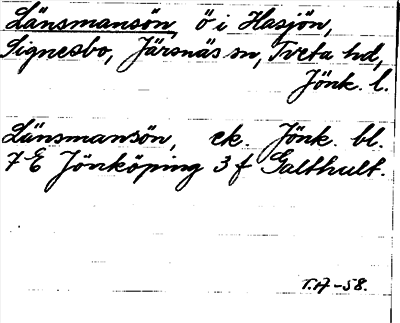 Länsmansön, ö i Hasjön,
Signesbo, Järsnäs sn, Tveta hd,
Jönk. l.
Länsmansön, ek. Jönk. bl.
7 E Jönköping 3 f Galthult.
T.A-58.